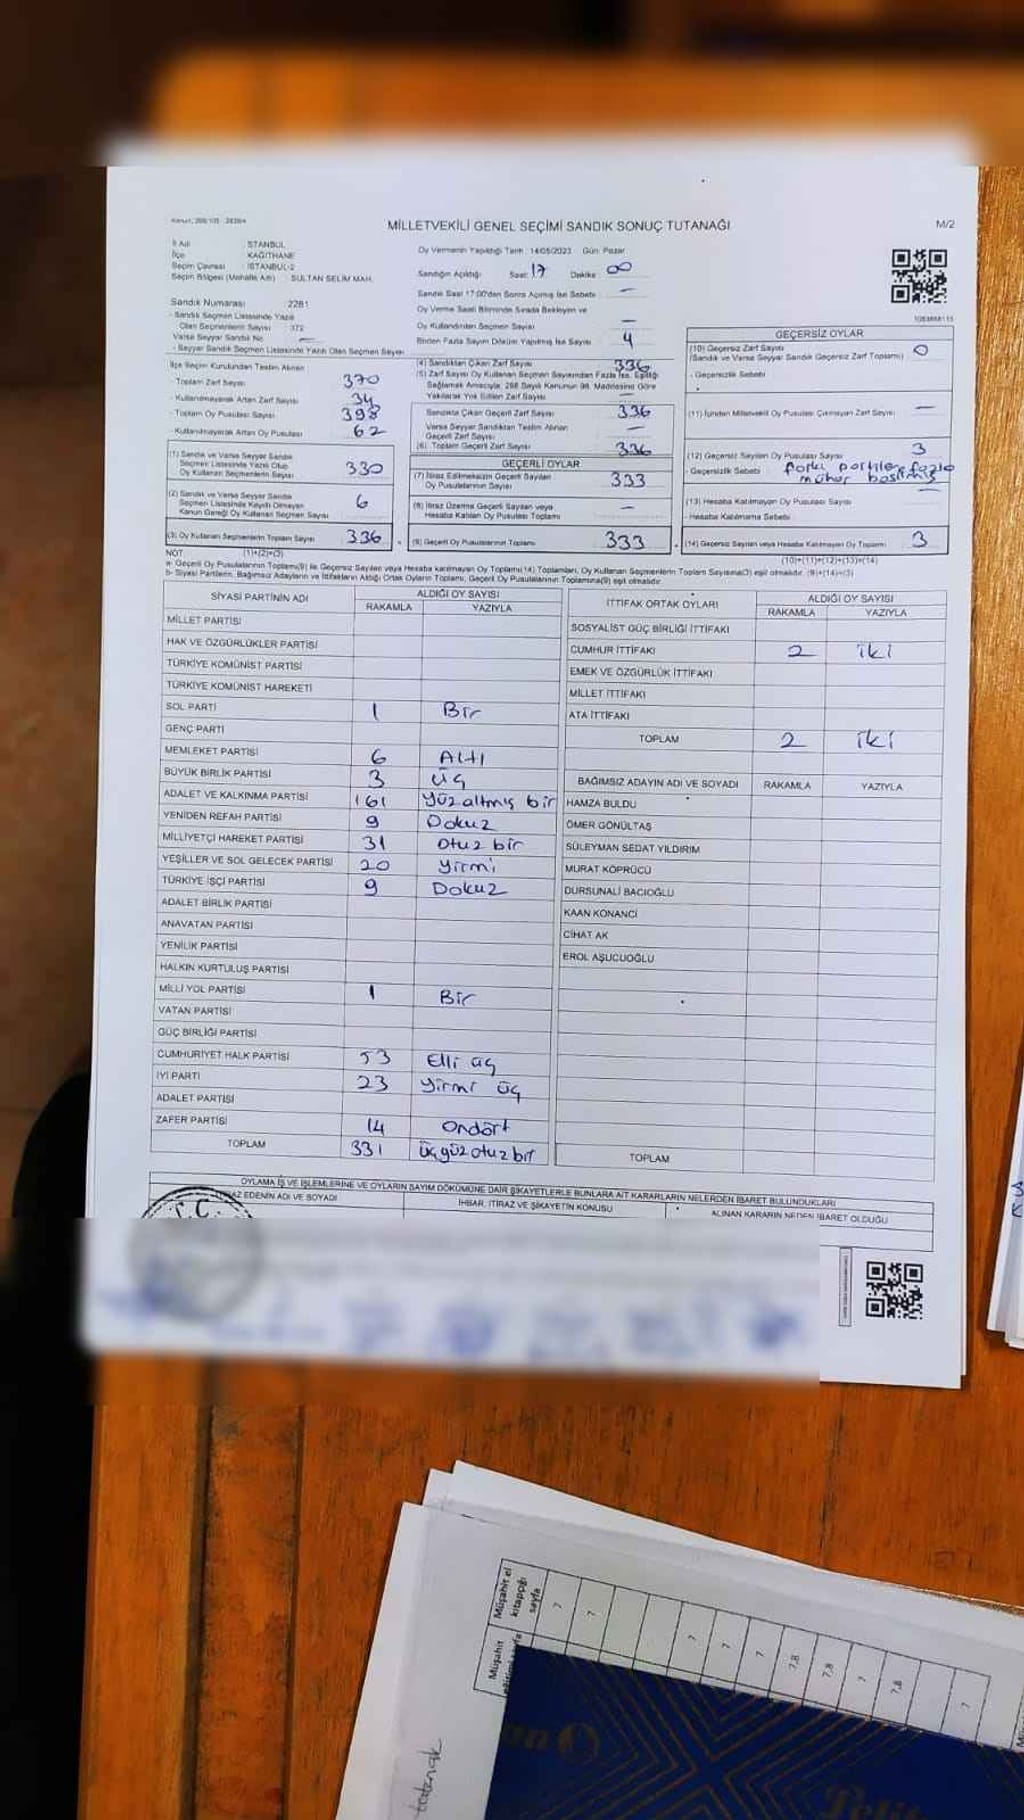 MİLLETVEKİLİ GENEL SEÇİMİ SANDIK SONUÇ TUTANAĞI
M/2
İl Adı : İSTANBUL
İlçe : KAĞITHANE
Seçim Çevresi : İSTANBUL-2
Seçim Bölgesi (Mahalle Adı) : SULTAN SELİM MAH.
Sandık Numarası : 2281
- Sandık Seçmen Listesinde Yazılı
Olan Seçmenlerin Sayısı : 372
Varsa Seyyar Sandık No —
- Seyyar Sandık Seçmen Listesinde Yazılı Olan Seçmen Sayısı
İlçe Seçim Kurulundan Teslim Alınan
- Toplam Zarf Sayısı 370
- Kullanılmayarak Artan Zarf Sayısı 34
- Toplam Oy Pusulası Sayısı 398
- Kullanılmayarak Artan Oy Pusulası 62
(1) Sandık ve Varsa Seyyar Sandık
Seçmen Listesinde Yazılı Olup
Oy Kullanan Seçmenlerin Sayısı 330
(2) Sandık ve Varsa Seyyar Sandık
Seçmen Listesinde Kayıtlı Olmayan
Kanun Gereği Oy Kullanan Seçmen Sayısı 6
(3) Oy Kullanan Seçmenlerin Toplam Sayısı 336
(1)+(2)=(3)
Oy Vermenin Yapıldığı Tarih : 14/05/2023 Gün: Pazar
Sandığın Açıldığı Saat: 17 Dakika : 00
Sandık Saat 17:00'den Sonra Açılmış İse Sebebi : —
Oy Verme Saati Bitiminde Sırada Bekleyen ve
Oy Kullandırılan Seçmen Sayısı —
Birden Fazla Sayım Döküm Yapılmış İse Sayısı 4
(4) Sandıktan Çıkan Zarf Sayısı 336
(5) Zarf Sayısı Oy Kullanan Seçmen Sayısından Fazla İse, Eşitliği
Sağlamak Amacıyla; 298 Sayılı Kanunun 98. Maddesine Göre
Yakılarak Yok Edilen Zarf Sayısı —
Sandıkta Çıkan Geçerli Zarf Sayısı 336
Varsa Seyyar Sandıktan Teslim Alınan
Geçerli Zarf Sayısı —
(6) Toplam Geçerli Zarf Sayısı 336
GEÇERLİ OYLAR
(7) İtiraz Edilmeksizin Geçerli Sayılan
Oy Pusulalarının Sayısı 333
(8) İtiraz Üzerine Geçerli Sayılan veya
Hesaba Katılan Oy Pusulası Toplamı —
(9) Geçerli Oy Pusulalarının Toplamı 333
GEÇERSİZ OYLAR
(10) Geçersiz Zarf Sayısı 0
(Sandık ve Varsa Seyyar Sandık Geçersiz Zarf Toplamı)
- Geçersizlik Sebebi
(11) İçinden Milletvekili Oy Pusulası Çıkmayan Zarf Sayısı —
(12) Geçersiz Sayılan Oy Pusulası Sayısı 3
- Geçersizlik Sebebi
mühür basılmış
(13) Hesaba Katılmayan Oy Pusulası Sayısı —
- Hesaba Katılmama Sebebi
(14) Geçersiz Sayılan veya Hesaba Katılmayan Oy Toplamı 3
(10)+(11)+(12)+(13)=(14)
NOT
a- Geçerli Oy Pusulalarının Toplamı(9) ile Geçersiz Sayılan veya Hesaba Katılmayan Oy Toplamı(14) Toplamları, Oy Kullanan Seçmenlerin Toplam Sayısına(3) eşit olmalıdır. (9)+(14)=(3)
b- Siyasi Partilerin, Bağımsız Adayların ve İttifakların Aldığı Ortak Oyların Toplamı, Geçerli Oy Pusulalarının Toplamına(9) eşit olmalıdır.
SİYASİ PARTİNİN ADI ALDIĞI OY SAYISI
RAKAMLA YAZIYLA
MİLLET PARTİSİ
HAK VE ÖZGÜRLÜKLER PARTİSİ
TÜRKİYE KOMÜNİST PARTİSİ
TÜRKİYE KOMÜNİST HAREKETİ
SOL PARTİ 1 Bir
GENÇ PARTİ
MEMLEKET PARTİSİ 6 Altı
BÜYÜK BİRLİK PARTİSİ 3 üç
ADALET VE KALKINMA PARTİSİ 161 yüz altmış bir
YENİDEN REFAH PARTİSİ 9 Dokuz
MİLLİYETÇİ HAREKET PARTİSİ 31 otuz bir
YEŞİLLER VE SOL GELECEK PARTİSİ 20 yirmi
TÜRKİYE İŞÇİ PARTİSİ 9 Dokuz
ADALET BİRLİK PARTİSİ
ANAVATAN PARTİSİ
YENİLİK PARTİSİ
HALKIN KURTULUŞ PARTİSİ
MİLLİ YOL PARTİSİ 1 Bir
VATAN PARTİSİ
GÜÇ BİRLİĞİ PARTİSİ
CUMHURİYET HALK PARTİSİ 53 Elli üç
İYİ PARTİ 23 yirmi üç
ADALET PARTİSİ
ZAFER PARTİSİ 14 Ondört
TOPLAM 331 üçyüz otuz bir
İTTİFAK ORTAK OYLARI ALDIĞI OY SAYISI
RAKAMLA YAZIYLA
SOSYALİST GÜÇ BİRLİĞİ İTTİFAKI
CUMHUR İTTİFAKI 2 iki
EMEK VE ÖZGÜRLÜK İTTİFAKI
MİLLET İTTİFAKI
ATA İTTİFAKI
TOPLAM 2 iki
BAĞIMSIZ ADAYIN ADI VE SOYADI RAKAMLA YAZIYLA
HAMZA BULDU
ÖMER GÖNÜLTAŞ
SÜLEYMAN SEDAT YILDIRIM
MURAT KÖPRÜCÜ
DURSUNALİ BACIOĞLU
KAAN KONANCİ
CİHAT AK
EROL AŞUCUOĞLU
TOPLAM
OYLAMA İŞ VE İŞLEMLERİNE VE OYLARIN SAYIM DÖKÜMÜNE DAİR ŞİKAYETLERLE BUNLARA AİT KARARLARIN NELERDEN İBARET BULUNDUKLARI
EDENİN ADI VE SOYADI İHBAR, İTİRAZ VE ŞİKAYETİN KONUSU ALINAN KARARIN NEDEN İBARET OLDUĞU
T.C.
Müşahit el
kitapçığı
sayfa
Müşahit
7
7
7
7
7
7,8
7,8
7
7,8
7
tutanak